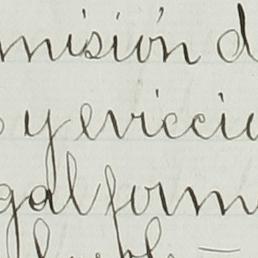 misión d
y evicció
gal form